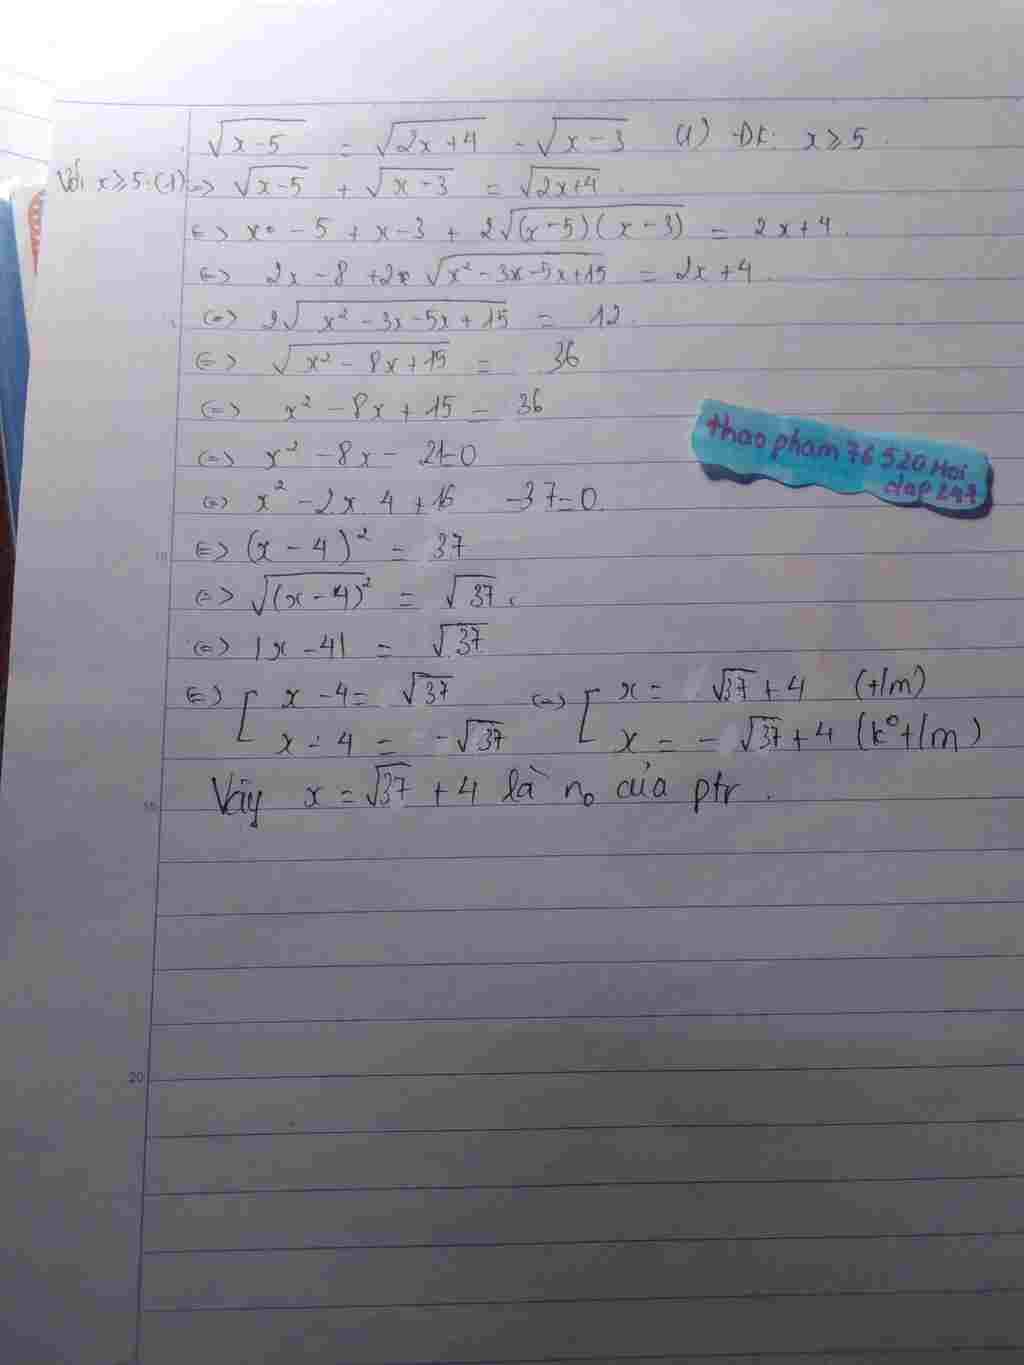 √(x-5) = √(2x+4) - √(x-3) (1) ĐK: x ⩾ 5.
Với x ⩾ 5. (1) <=> √(x-5) + √(x-3) = √(2x+4).
<=> x - 5 + x - 3 + 2√((x-5)(x-3)) = 2x+4.
<=> 2x - 8 + 2 √(x² - 3x - 5x + 15) = 2x + 4.
<=> 2√(x² - 3x - 5x + 15) = 12.
<=> √(x² - 8x + 15) = 36
<=> x² - 8x + 15 = 36
<=> x² - 8x - 21=0
<=> x² - 2x.4 + 16 - 37 = 0.
10 <=> (x - 4)² = 37
<=> √(x - 4)² = √37.
<=> |x - 4| = √37
<=> [ x - 4 = √37 <=> [ x = √37 + 4 (t/m)
x - 4 = -√37 x = - √37 + 4 (k° t/m)
15 Vậy x = √37 + 4 là n₀ của ptr.
thao pham 76 520 Hoi
dap 247
20